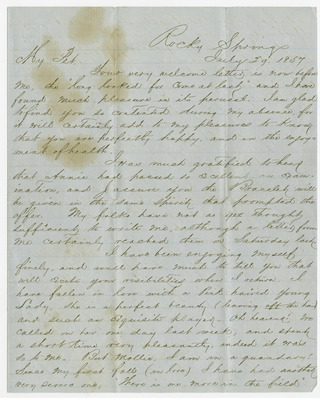 Rocky Springs
July 29, 1857
My Pet.
Your very welcome letter, is now before
me, the "long looked for come at last," and I have
found much pleasure in its perusal. I am glad
to find you so contented during my absence for
it will certainly add to my pleasure to know
that you are perfectly happy, and in the enjoy-
ment of health.
I was much gratified to hear
that Annie had passed so Excellent an Exam-
ination, and I assure you the Bracelet will
be given in the same Spirit that prompted the
offer. My folks have not as yet thought
sufficient to write me, although a letter from
me certainly reached them on Saturday last
I have been enjoying myself
finely, and will have much to tell you that
will Excite your risibilities when I return. I
have fallen in love with a dark haired young
Lady, she is a perfect beauty (baring off the hand
and such an Exquisite player. Oh heavens! We
called on her one day last week, and spent
a short time very pleasantly, indeed it was
so to me. But Mollie, I am in a quandary!
Since my first fall (in love) I have had another
very severe one, There is no more in the field